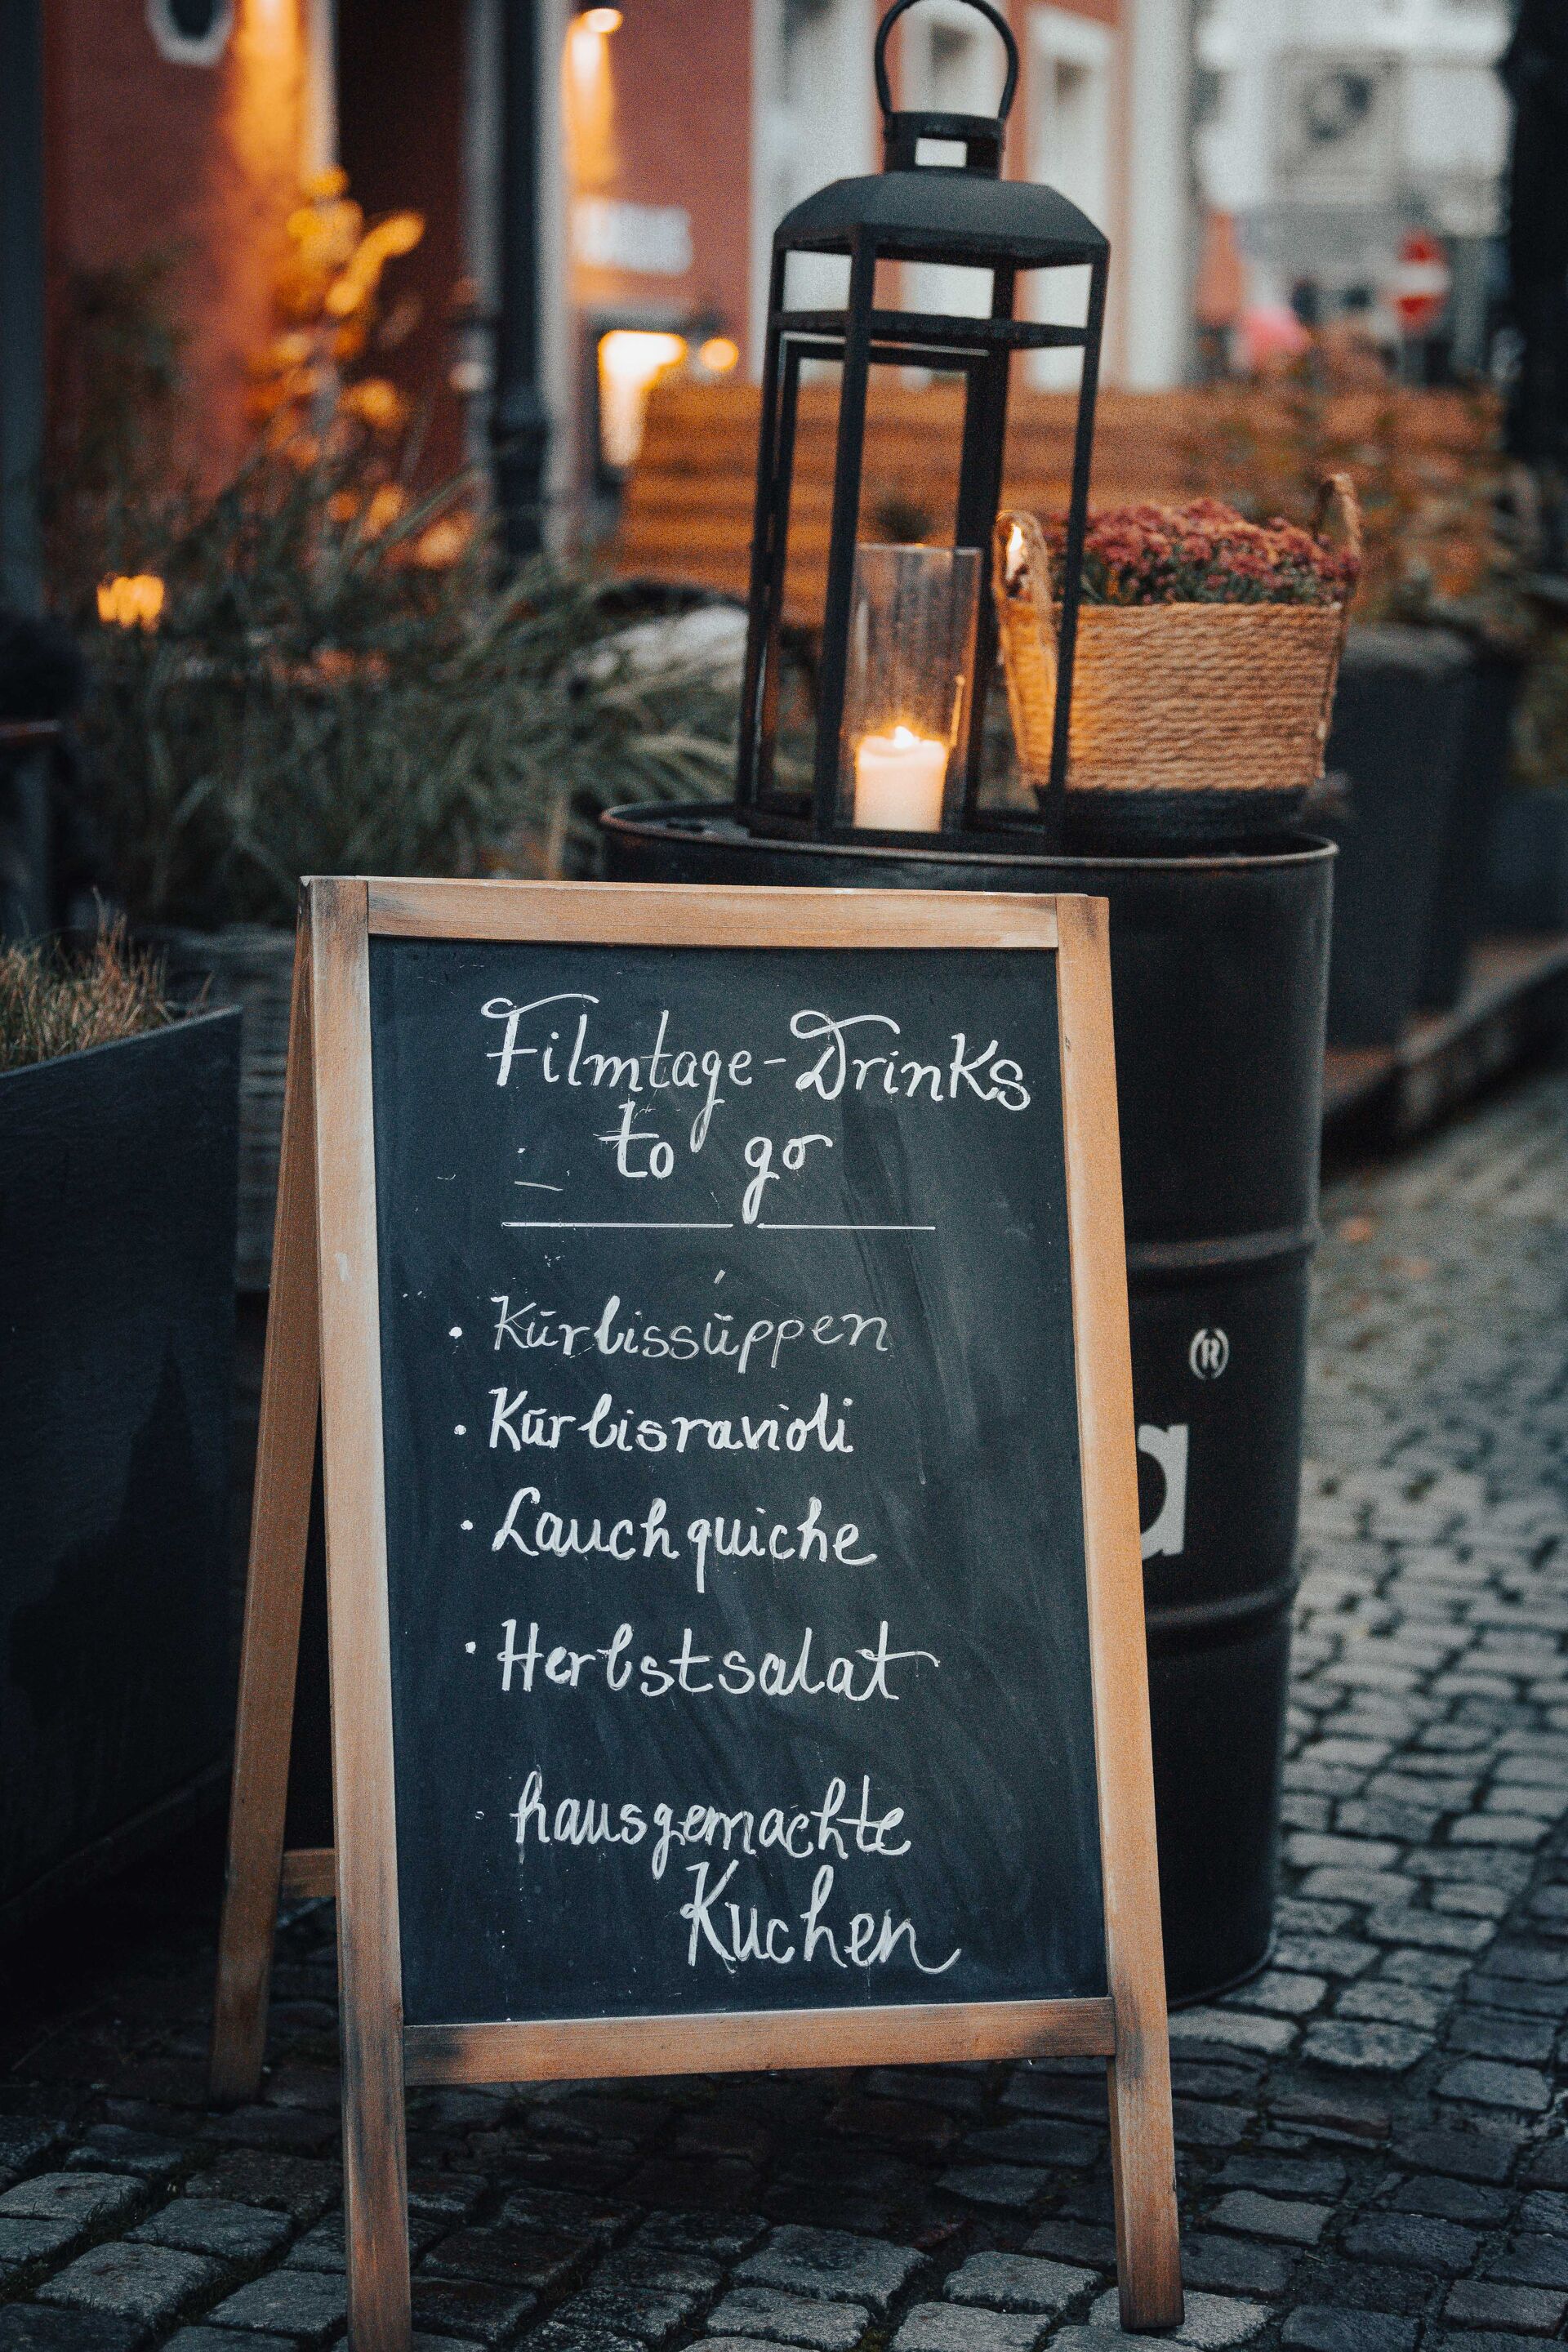 Filmtage-Drinks
to go
• Kürbissüppen
• Kürbisravioli
• Lauchquiche
• Herbstsalat
hausgemachte
Kuchen
(R)
a